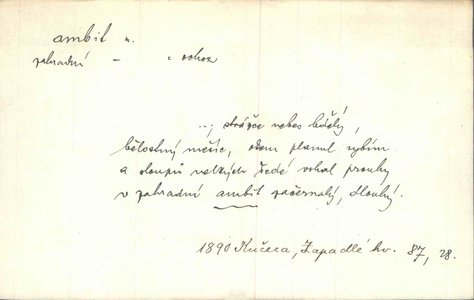 ambit m.
zahradní – : ochoz
..; strážce nebes bdělý,
bělostný měsíc, okem planul rybím
a sloupů velkých šedé vrhal pruhy
v zahradní ambit začernalý, dlouhý.
1890 Kučera, Zapadlé hv. 87, 28.